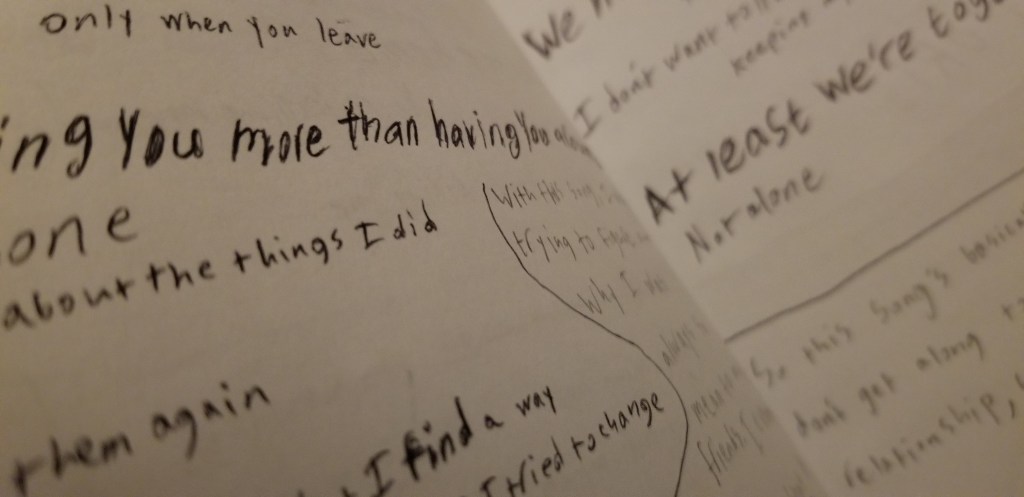 only when you leave
ing You more than having You
one
about the things I did
them again
I find a way
I tried to change
With this song
trying to
Why I
always
We
I don't want to
keeping
At least we're toge
Not alone
So this song's basical
don't get along
relationship,